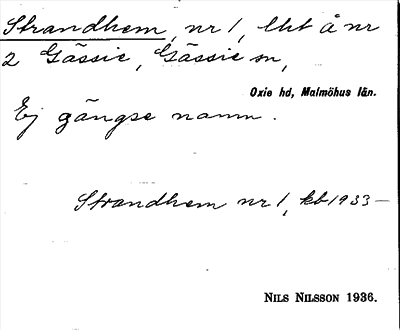 Strandhem, nr 1, lht å nr
2 Gässie, Gässie sn,
Oxie hd, Malmöhus län.
Ej gängse namn.
Strandhem nr 1, kb 1933—
NILS NILSSON 1936.